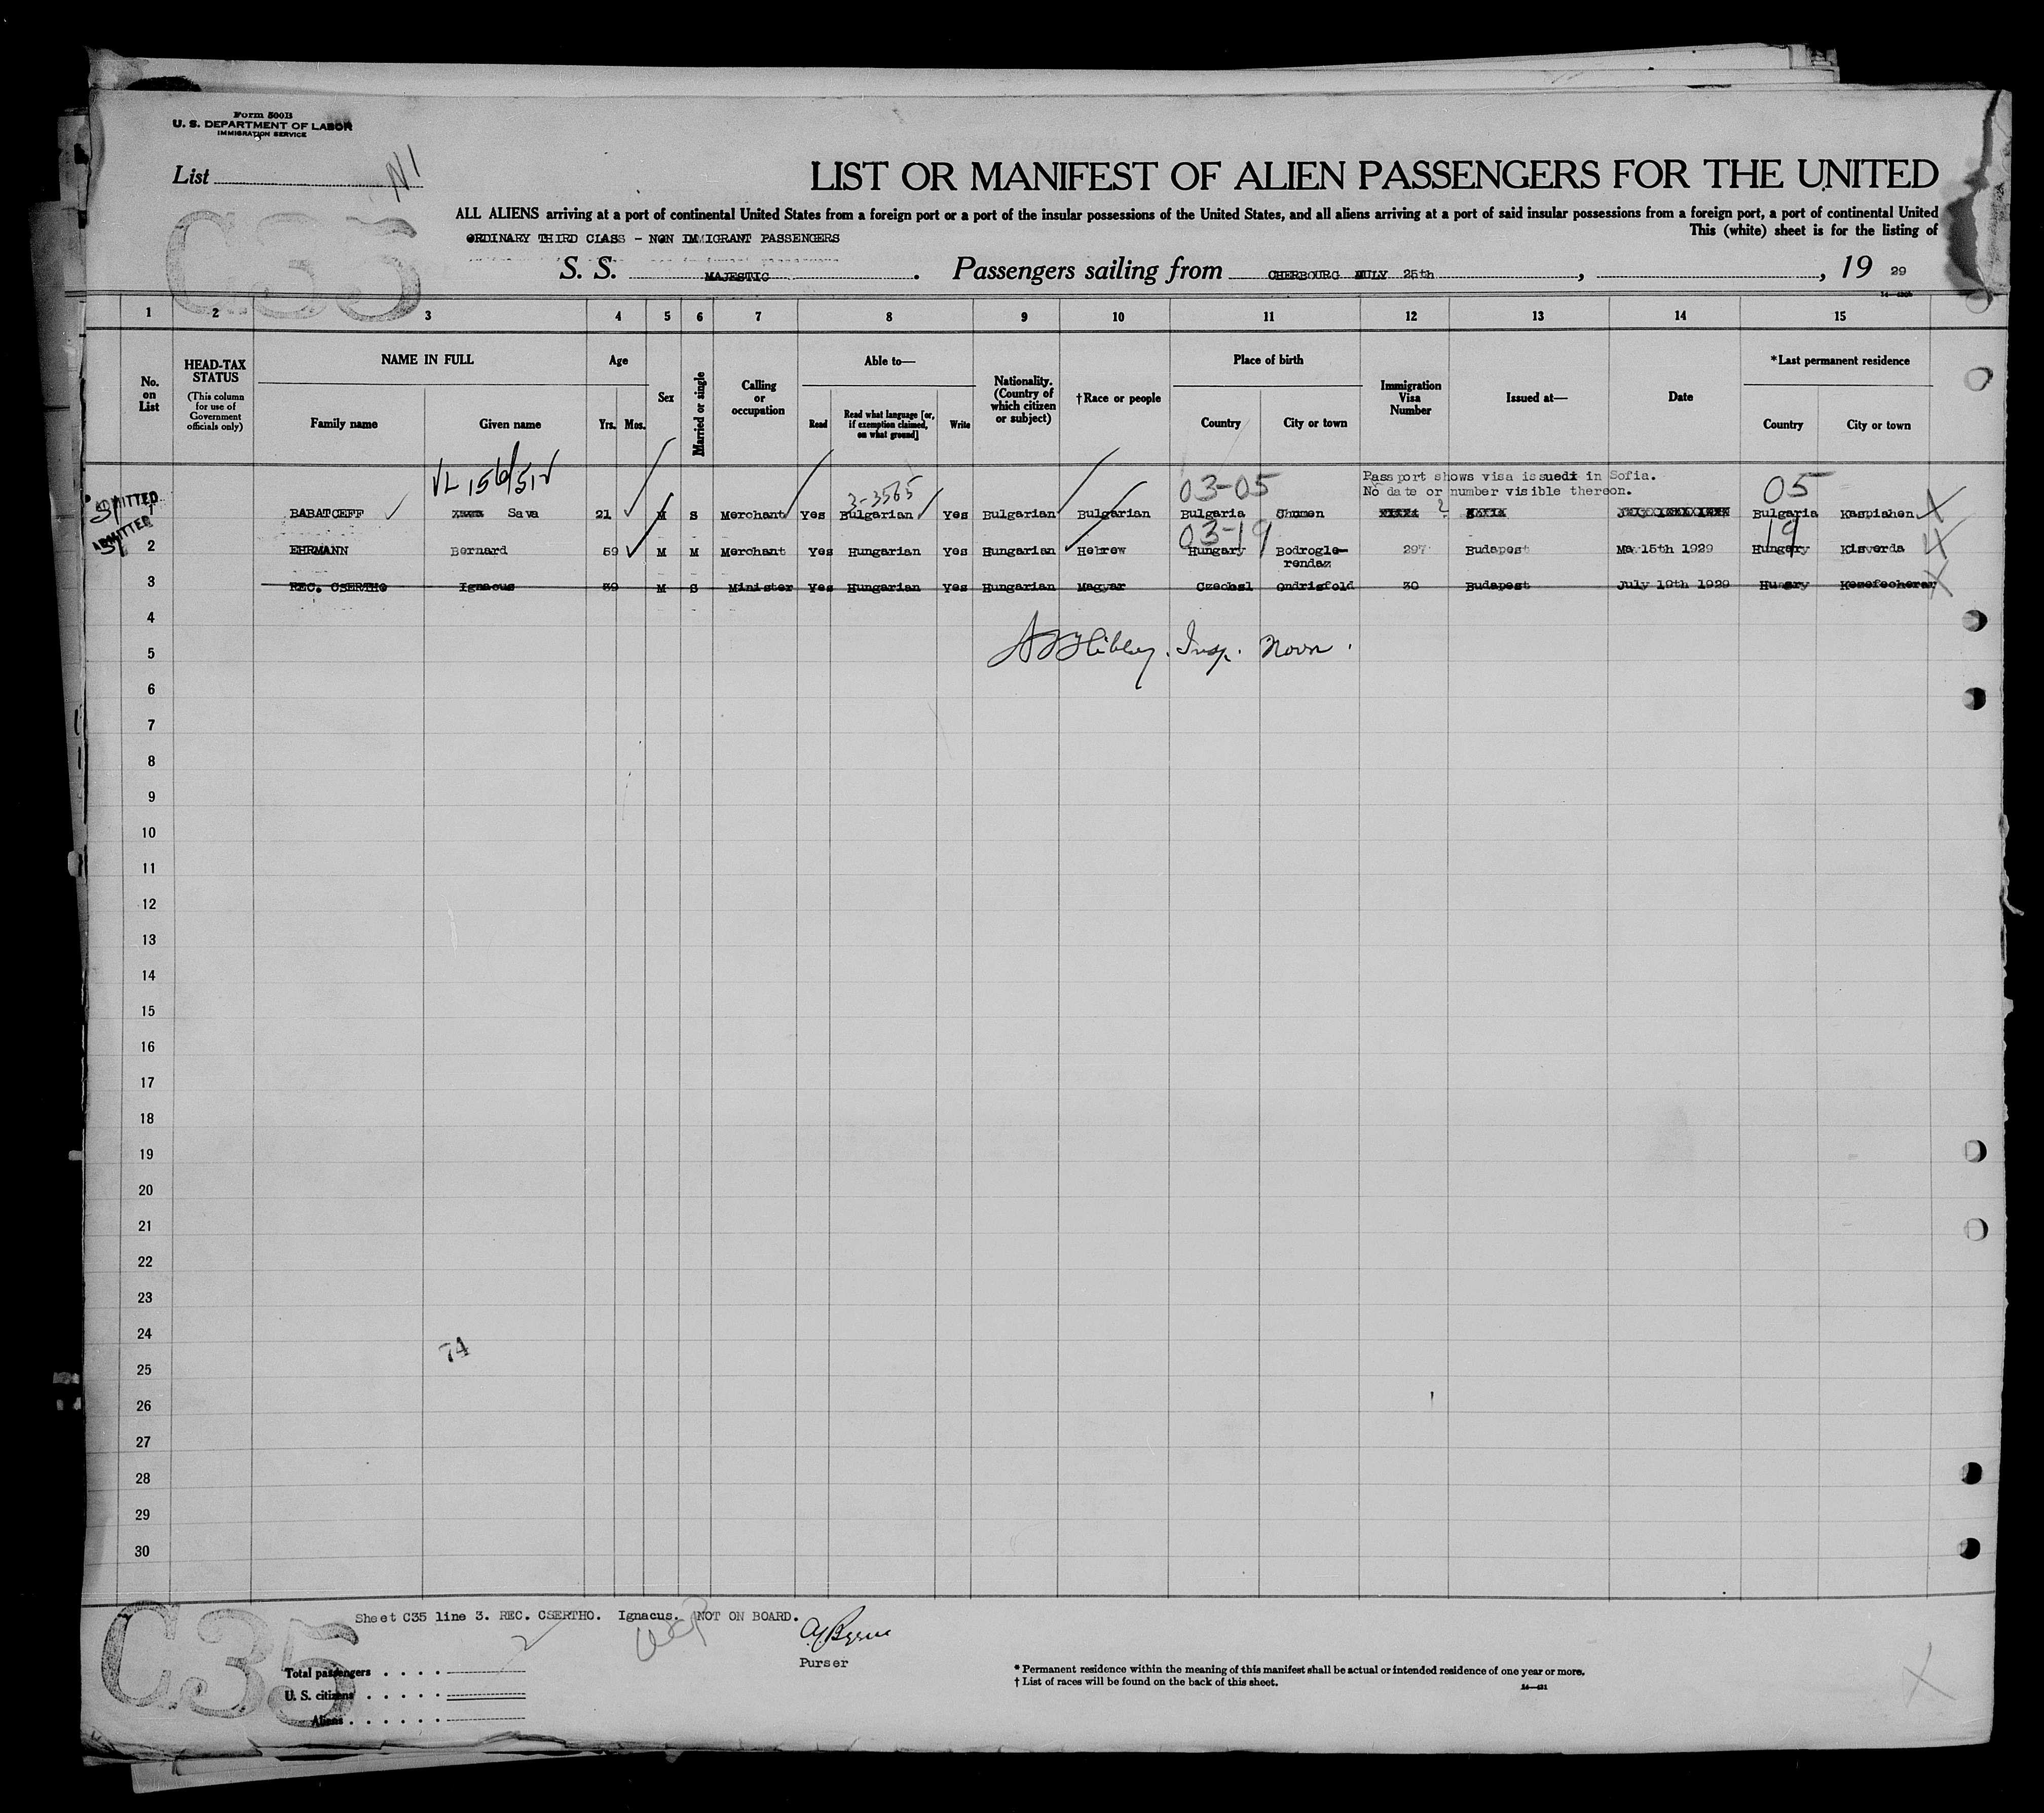 Form 500B
U. S. DEPARTMENT OF LABOR
IMMIGRATION SERVICE
List N I
LIST OR MANIFEST OF ALIEN PASSENGERS FOR THE UNITED
ALL ALIENS arriving at a port of continental United States from a foreign port or a port of the insular possessions of the United States, and all aliens arriving at a port of said insular possessions from a foreign port, a port of continental United
This (white) sheet is for the listing of
ORDINARY THIRD CLASS - NON IMMIGRANT PASSENGERS
C35
S. S. MAJESTIC. Passengers sailing from CHERBOURG JULY 25th, , 19 29
1 2 3 4 5 6 7 8 9 10 11 12 13 14 15
No. on List
HEAD-TAX STATUS (This column for use of Government officials only)
NAME IN FULL
Family name Given name
Age
Yrs. Mos.
Sex
Married or single
Calling or occupation
Able to—
Read Read what language [or, if exemption claimed, on what ground] Write
Nationality. (Country of which citizen or subject)
†Race or people
Place of birth
Country City or town
Immigration Visa Number
Issued at—
Date
*Last permanent residence
Country City or town
3-3565 03-05 05
Passport shows visa issued in Sofia.
No date or number visible thereon.
ADMITTED
1 BABATCEFF Sava 21 M S Merchant Yes Bulgarian Yes Bulgarian Bulgarian Bulgaria Chumen Bulgaria Kaspichen X
03-19 19
ADMITTED
2 EHRMANN Bernard 59 M M Merchant Yes Hungarian Yes Hungarian Hebrew Hungary Bodrogle-rendaz 297 Budapest Ma 15th 1929 Hungary Kisverda X
3 REC. CSERTHO Ignacus 39 M S Minister Yes Hungarian Yes Hungarian Magyar Czechsl Ondrisfold 30 Budapest July 19th 1929 Hungary X
4
5
6
7
8
9
10
11
12
13
14
15
16
17
18
19
20
21
22
23
24
74
25
26
27
28
29
30
Sheet C35 line 3. REC. CSERTHO. Ignacus. NOT ON BOARD.
Purser
C35
Total passengers
U. S. citizens
Aliens
* Permanent residence within the meaning of this manifest shall be actual or intended residence of one year or more.
† List of races will be found on the back of this sheet.
X